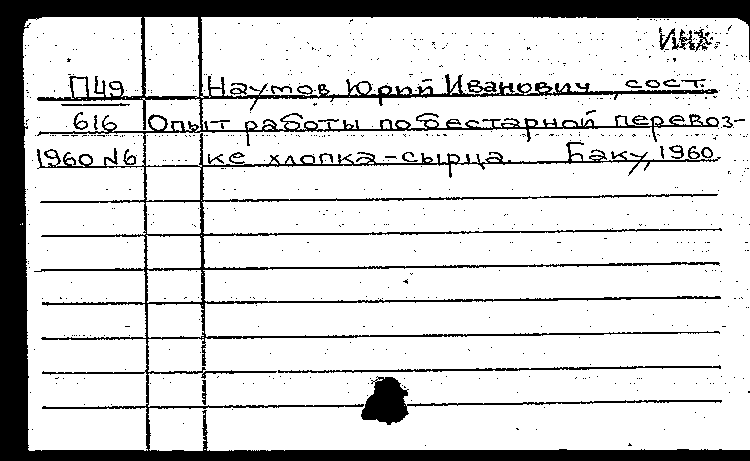 ИНХ
П49 Наумов, Юрий Иванович, сост.
616 Опыт работы по бестарной перевоз-
1960 №6 ке хлопка-сырца. Баку, 1960